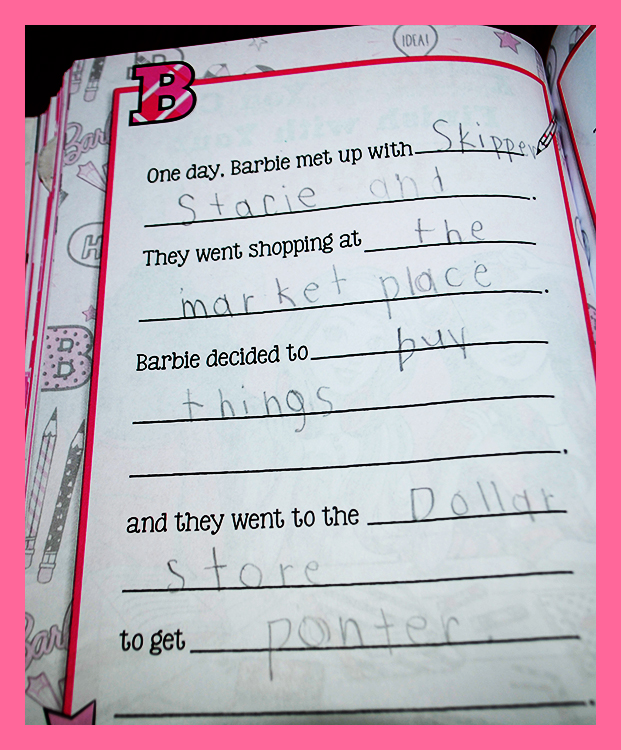 IDEA!
B
One day, Barbie met up with Skipper
Stacie and .
They went shopping at the
market place .
Barbie decided to buy
things
.
and they went to the Dollar
store
to get ponter.
.
B
H
Barb
Bar